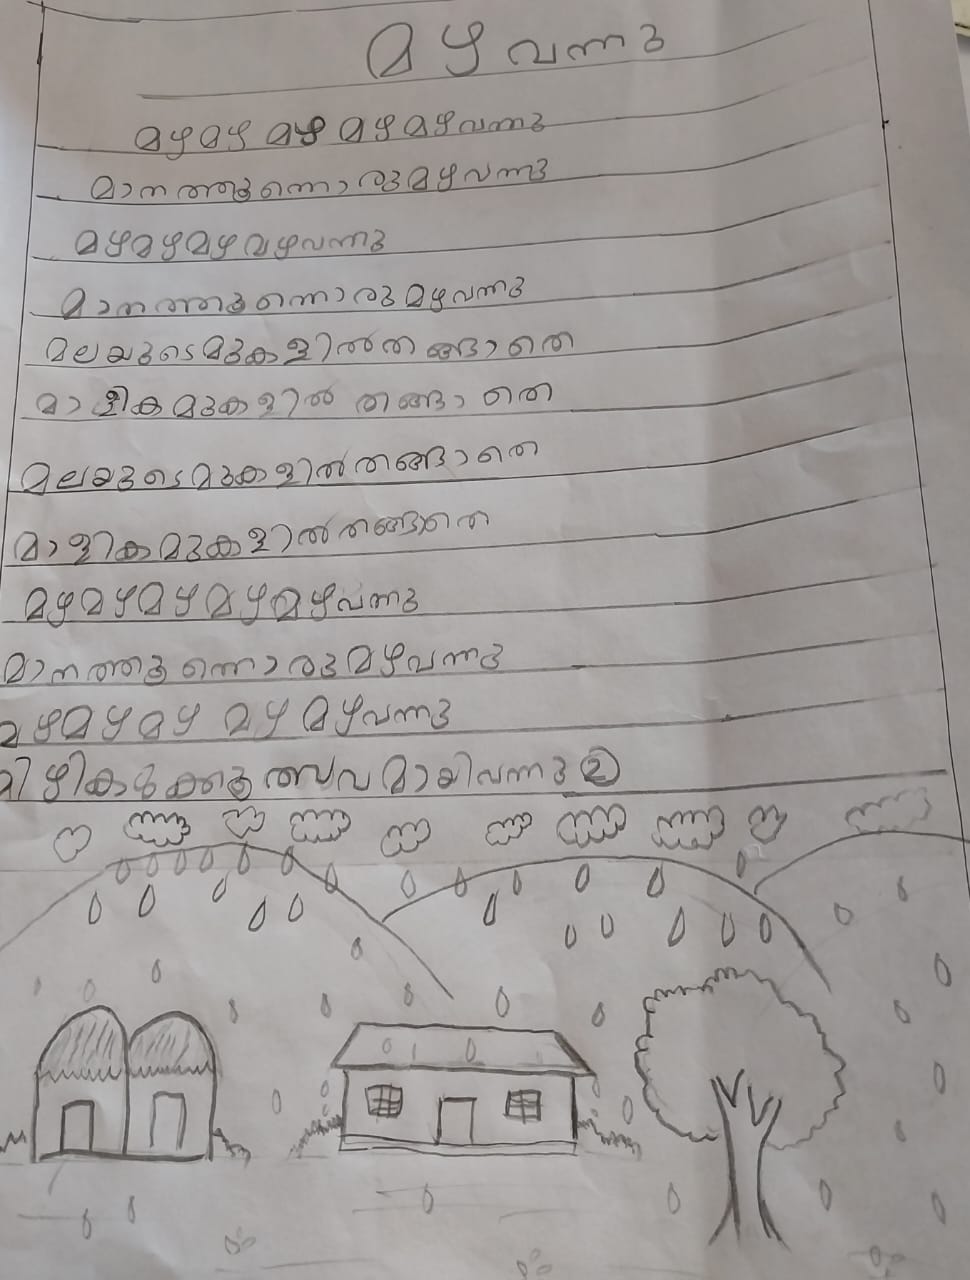 മഴ വന്നു
മഴ മഴ മഴ മഴ മഴ വന്നു
മാനത്തുന്നൊരു മഴ വന്നു
മഴ മഴ മഴ മഴ വന്നു
മാനത്തുന്നൊരു മഴ വന്നു
മലയുടെ മുകളിൽ തങ്ങാതെ
മാളിക മുകളിൽ തങ്ങാതെ
മലയുടെ മുകളിൽ തങ്ങാതെ
മാളിക മുകളിൽ തങ്ങാതെ
മഴ മഴ മഴ മഴ മഴ വന്നു
മാനത്തുന്നൊരു മഴ വന്നു
മഴ മഴ മഴ മഴ മഴ വന്നു
മിഴികൾക്കുത്സവമായി വന്നു ②